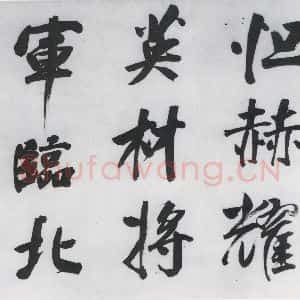 烜赫耀
英材將
軍臨北
Shufawang.CN